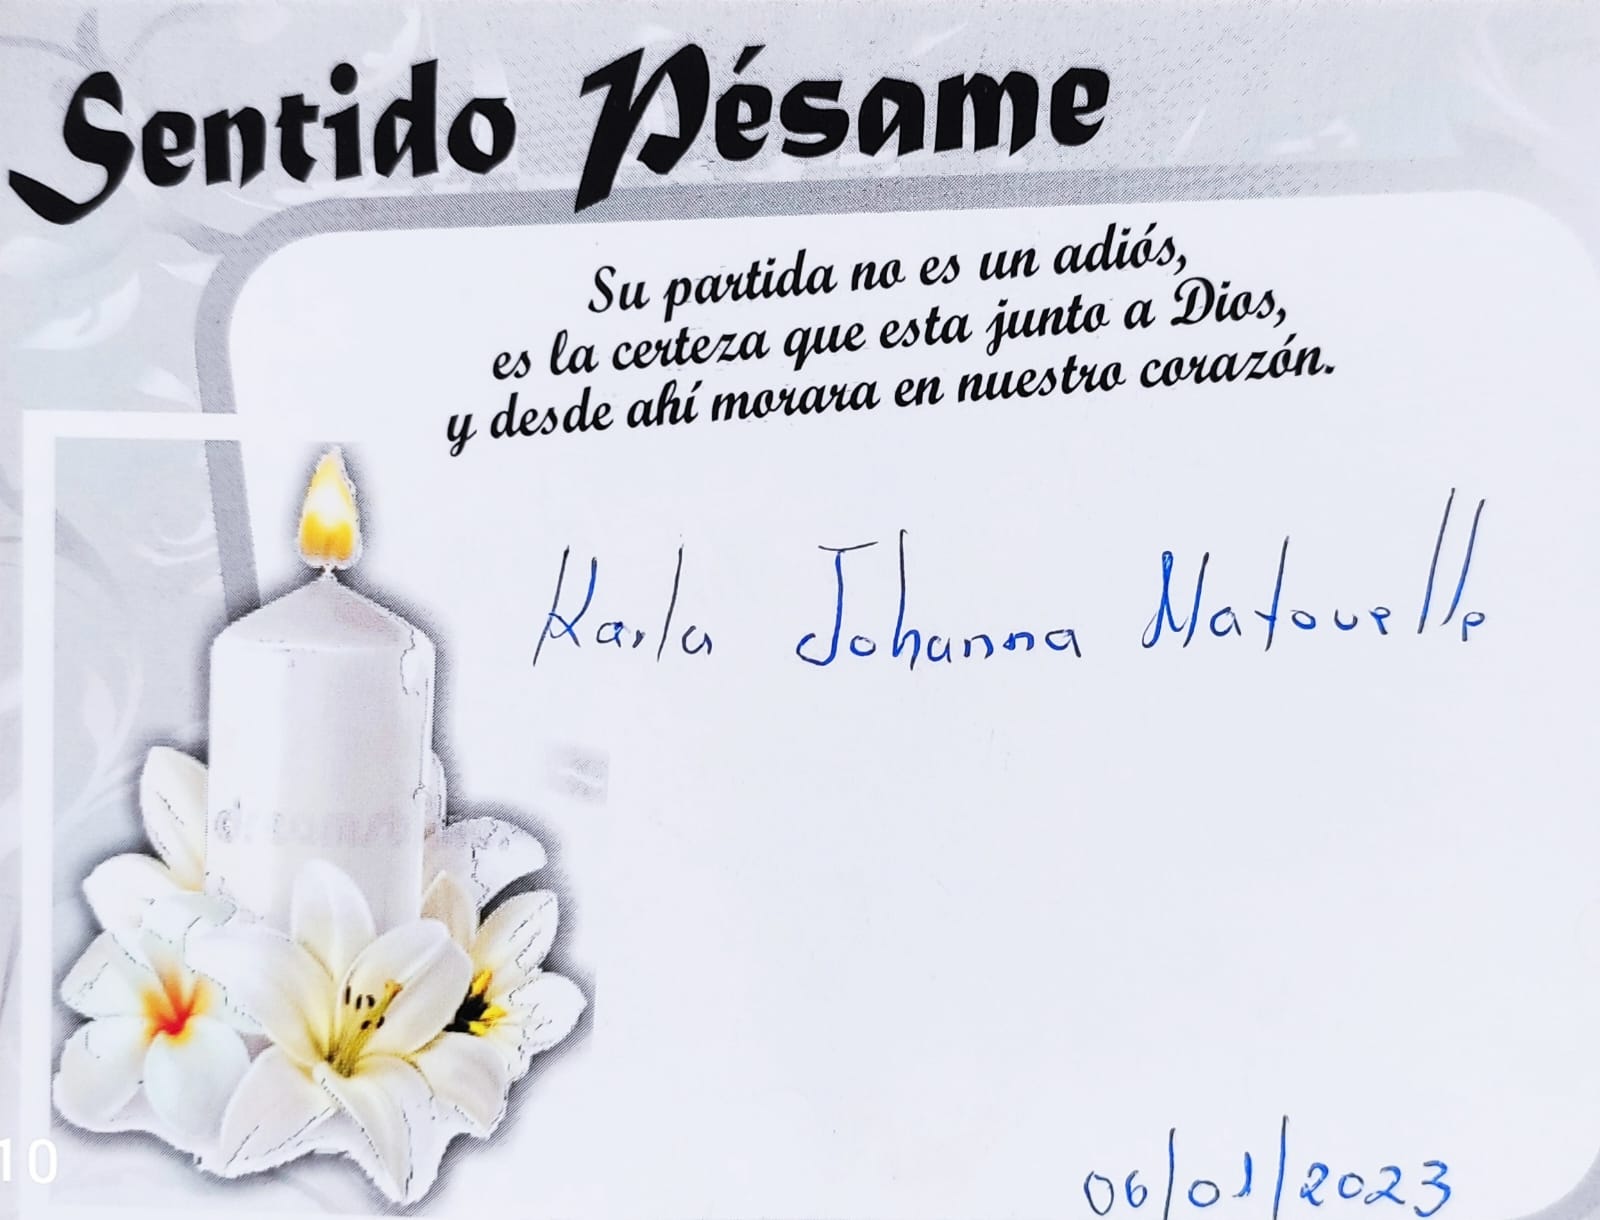 Sentido Pésame
Su partida no es un adiós,
es la certeza que esta junto a Dios,
y desde ahí morara en nuestro corazón.
Karla Johanna Matovelle
06/01/2023
10